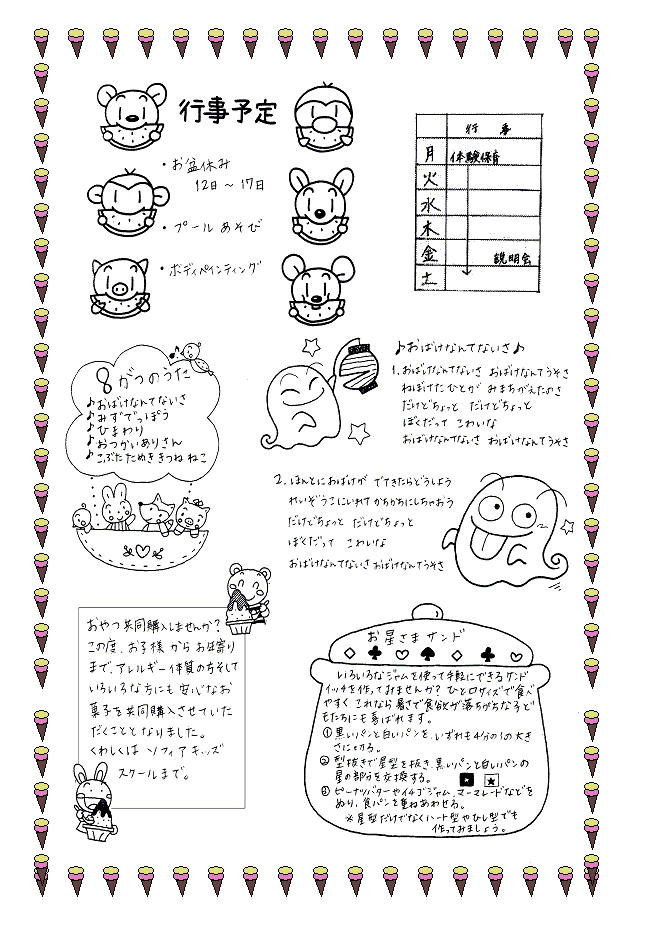 行事予定
・お盆休み
12日～17日
・プールあそび
・ボディペインティング
行 事
月 体験保育
火
水
木
金 説明会
土
8がつのうた
♪おばけなんてないさ
♪みずでっぽう
♪ひまわり
♪おつかいありさん
♪こぶたたぬききつねねこ
♪おばけなんてないさ♪
1.おばけなんてないさ おばけなんてうそさ
ねぼけたひとが みまちがえたのさ
だけどちょっと だけどちょっと
ぼくだって こわいな
おばけなんてないさ おばけなんてうそさ
2.ほんとにおばけが でてきたらどうしよう
れいぞうこにいれて かちかちにしちゃおう
だけどちょっと だけどちょっと
ぼくだって こわいな
おばけなんてないさ おばけなんてうそさ
おやつ共同購入しませんか？
この度、お子様からお年寄り
まで、アレルギー体質の方そして
いろいろな方にも安心なお
菓子を共同購入させていた
だくこととなりました。
くわしくは ソフィアキッズ
スクールまで。
お星さまサンド
いろいろなジャムを使って手軽にできるサンド
イッチを作ってみませんか？ひと口サイズで食べ
やすく、これなら暑さで食欲が落ちがちな子ど
もたちにも喜ばれます。
①黒いパンと白いパンを、いずれも4分の1の大き
さに切る。
②型抜きで星型を抜き、黒いパンと白いパンの
星の部分を交換する。
③ピーナッツバターやイチゴジャム、マーマレードなどを
ぬり、食パンと重ねあわせる。
※星型だけでなくハート型やひし型でも
作ってみましょう。